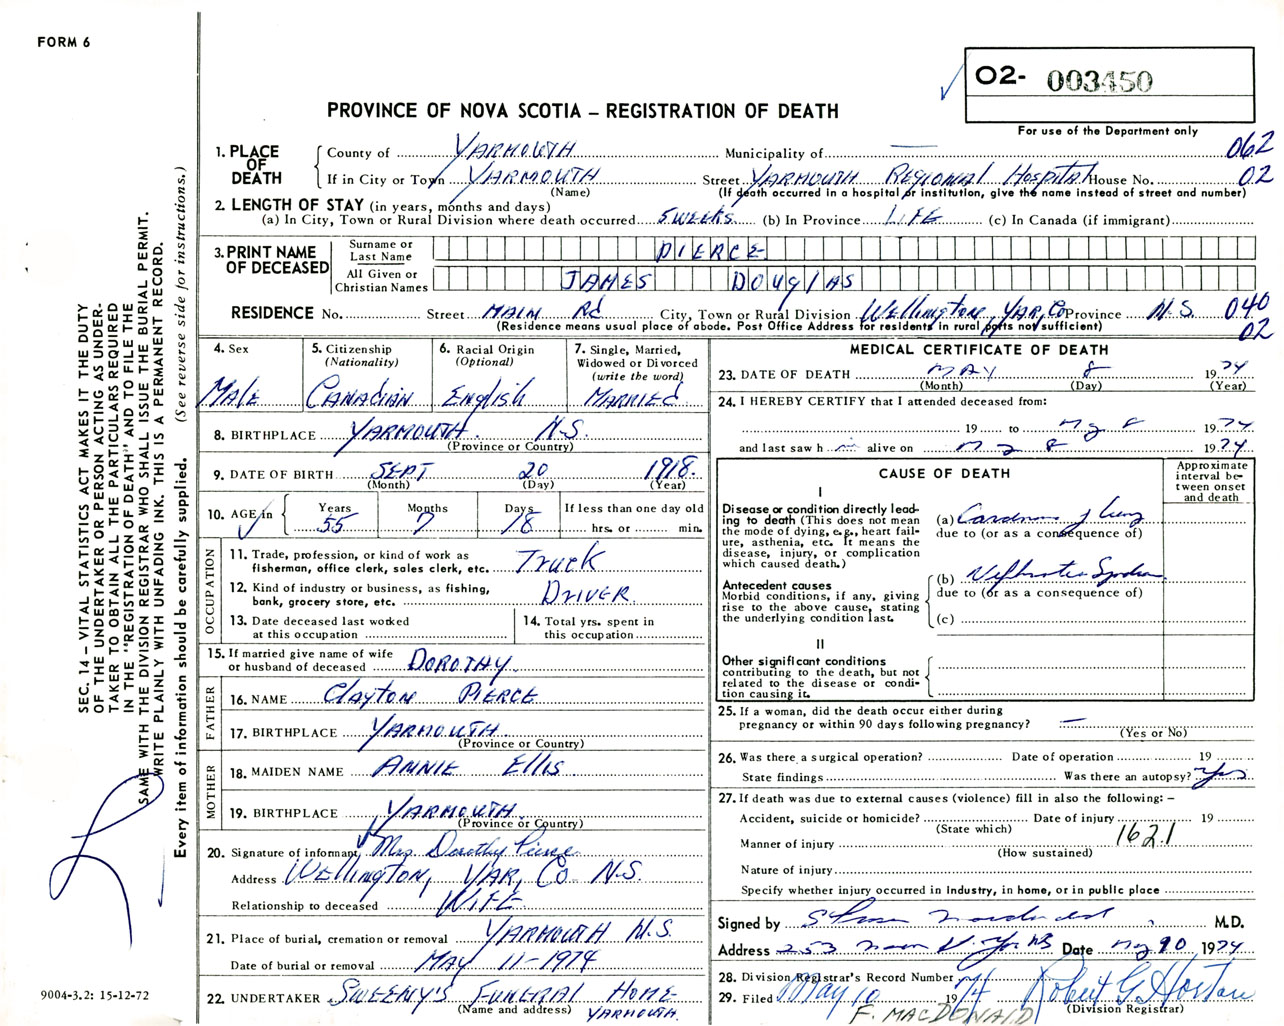 FORM 6
O2- 003450
For use of the Department only
PROVINCE OF NOVA SCOTIA – REGISTRATION OF DEATH
1. PLACE OF DEATH
County of YARMOUTH Municipality of — 062
If in City or Town YARMOUTH Street YARMOUTH REGIONAL HOSPITAL House No. 02
(Name) (If death occurred in a hospital or institution, give the name instead of street and number)
2. LENGTH OF STAY (in years, months and days)
(a) In City, Town or Rural Division where death occurred 5 WEEKS (b) In Province LIFE (c) In Canada (if immigrant)
3. PRINT NAME OF DECEASED
Surname or Last Name PIERCE
All Given or Christian Names JAMES DOUglAS
RESIDENCE No. Street MAIN Rd City, Town or Rural Division WEllINgTON, YAR, Co Province N.S. 040
(Residence means usual place of abode. Post Office Address for residents in rural parts not sufficient) 02
4. Sex MAlE
5. Citizenship (Nationality) CANAdIAN
6. Racial Origin (Optional) ENglIsh
7. Single, Married, Widowed or Divorced (write the word) MARRIEd
8. BIRTHPLACE YARMOUTH. N.S.
(Province or Country)
9. DATE OF BIRTH SEPT 20 1918.
(Month) (Day) (Year)
10. AGE in Years 55 Months 7 Days 18 If less than one day old hrs. or min.
OCCUPATION
11. Trade, profession, or kind of work as fisherman, office clerk, sales clerk, etc. TRUCK
12. Kind of industry or business, as fishing, bank, grocery store, etc. DRIVER.
13. Date deceased last worked at this occupation
14. Total yrs. spent in this occupation
15. If married give name of wife or husband of deceased DOROTHY
FATHER
16. NAME ClAYTON PIERCE
17. BIRTHPLACE YARMOUTH.
(Province or Country)
MOTHER
18. MAIDEN NAME ANNIE EllIS
19. BIRTHPLACE YARMOUTH.
(Province or Country)
20. Signature of informant Mrs Dorothy Pierce
Address WEllINgTON, YAR, Co N.S.
Relationship to deceased WIFE
21. Place of burial, cremation or removal YARMOUTH N.S.
Date of burial or removal MAY 11-1974
22. UNDERTAKER SWEENY'S FUNERAL HOME
(Name and address) YARMOUTH.
MEDICAL CERTIFICATE OF DEATH
23. DATE OF DEATH MAY 8 1974
(Month) (Day) (Year)
24. I HEREBY CERTIFY that I attended deceased from:
19 to May 8 1974
and last saw h im alive on May 8 1974
CAUSE OF DEATH
Approximate interval between onset and death
I
Disease or condition directly leading to death (This does not mean the mode of dying, e.g., heart failure, asthenia, etc. It means the disease, injury, or complication which caused death.)
(a) Carcinoma of lung
due to (or as a consequence of)
Antecedent causes
Morbid conditions, if any, giving rise to the above cause, stating the underlying condition last.
(b) Nephrotic Syndrome
due to (or as a consequence of)
(c)
II
Other significant conditions contributing to the death, but not related to the disease or condition causing it.
25. If a woman, did the death occur either during pregnancy or within 90 days following pregnancy? —
(Yes or No)
26. Was there a surgical operation? Date of operation 19
State findings Was there an autopsy? Yes
27. If death was due to external causes (violence) fill in also the following: –
Accident, suicide or homicide? Date of injury 19
(State which)
Manner of injury 1621
(How sustained)
Nature of injury
Specify whether injury occurred in Industry, in home, or in public place
Signed by M.D.
Address 253 Main St. Date May 10 1974
28. Division Registrar's Record Number
29. Filed May 10 1974 Robert G. Horton
(Division Registrar)
F. MACDONALD
SEC. 14 – VITAL STATISTICS ACT MAKES IT THE DUTY
OF THE UNDERTAKER OR PERSON ACTING AS UNDER-
TAKER TO OBTAIN ALL THE PARTICULARS REQUIRED
IN THE "REGISTRATION OF DEATH" AND TO FILE THE
SAME WITH THE DIVISION REGISTRAR WHO SHALL ISSUE THE BURIAL PERMIT.
WRITE PLAINLY WITH UNFADING INK. THIS IS A PERMANENT RECORD.
Every item of information should be carefully supplied. (See reverse side for instructions.)
9004-3.2: 15-12-72